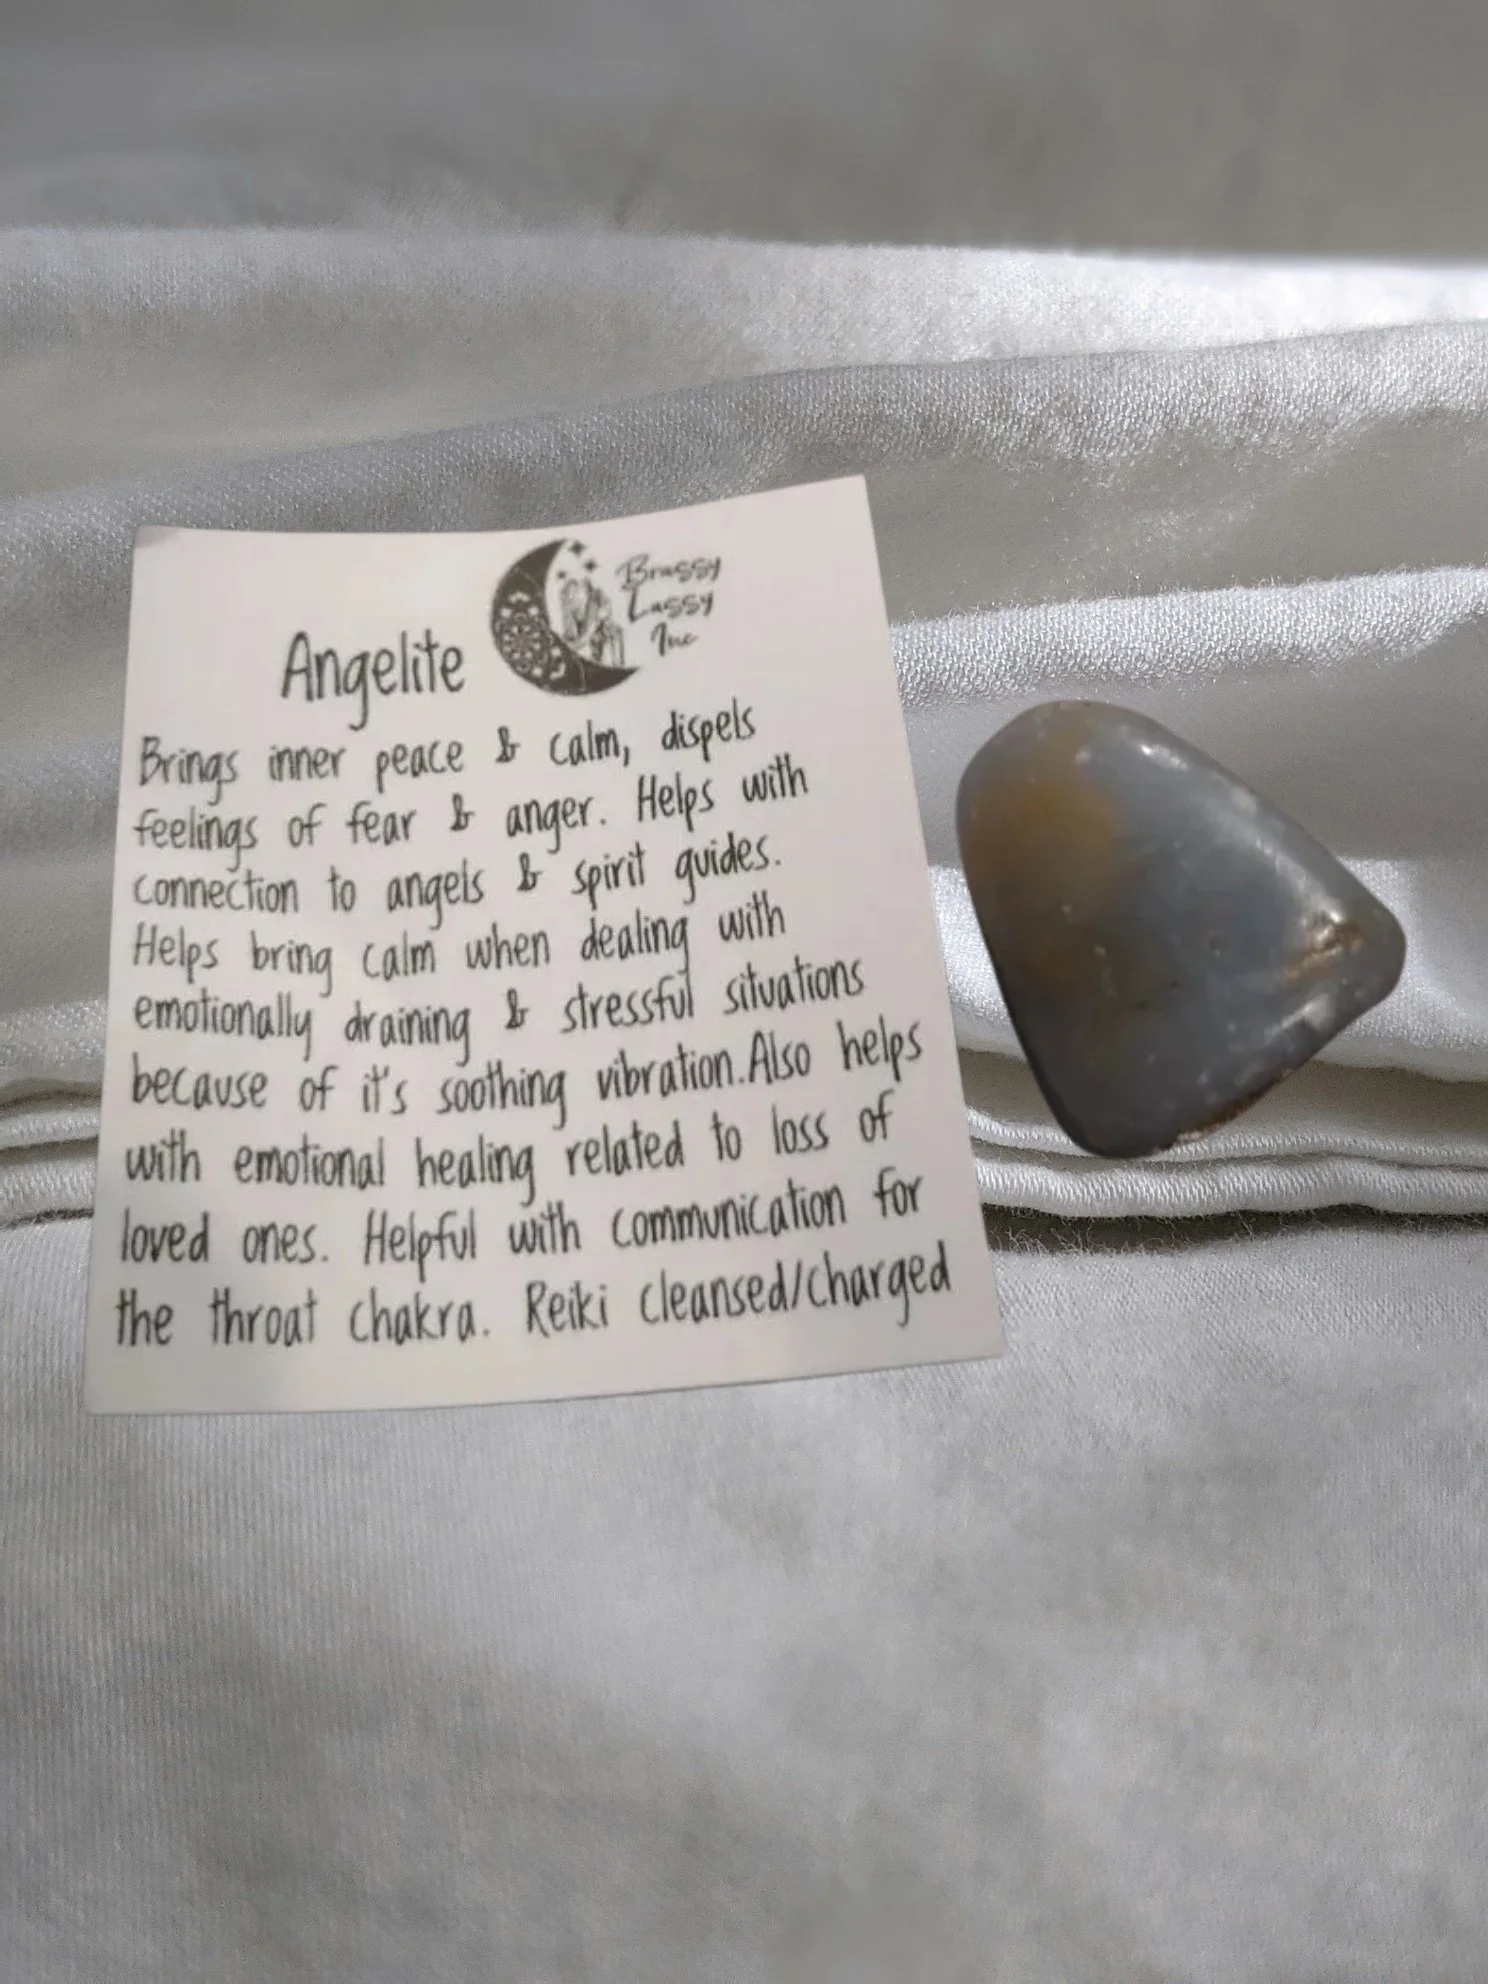 Brassy
Lassy
Inc
Angelite
Brings inner peace & calm, dispels
feelings of fear & anger. Helps with
connection to angels & spirit guides.
Helps bring calm when dealing with
emotionally draining & stressful situations
because of it's soothing vibration. Also helps
with emotional healing related to loss of
loved ones. Helpful with communication for
the throat chakra. Reiki cleansed/charged